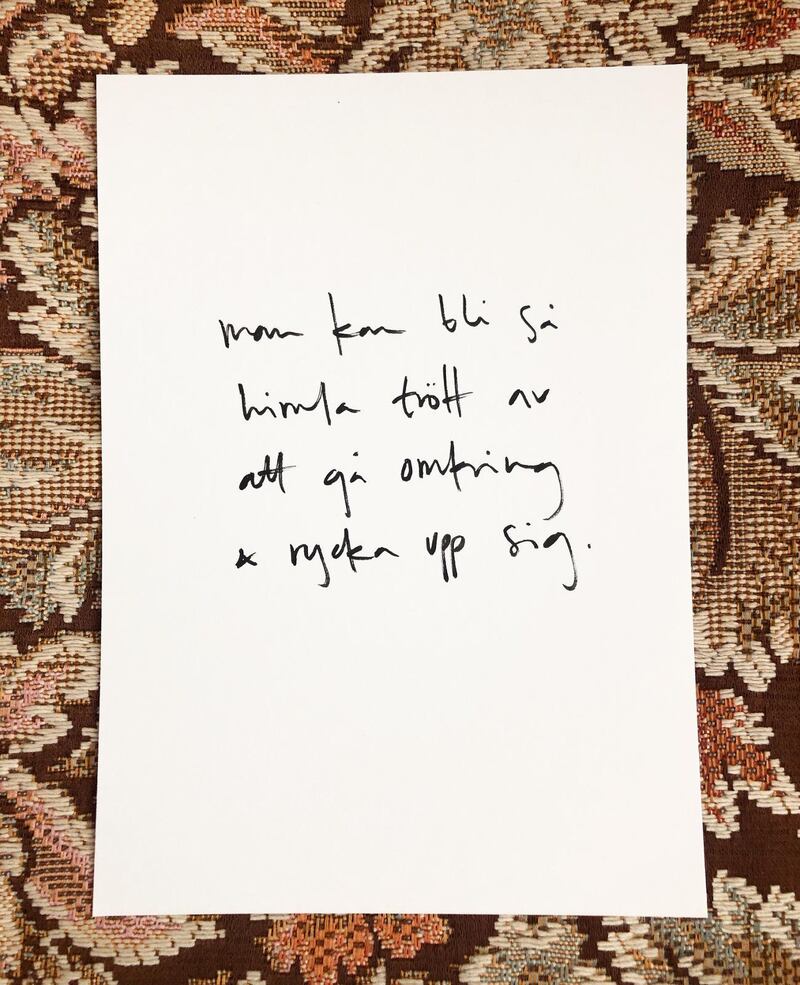 man kan bli så
himla trött av
att gå omkring
& rycka upp sig.